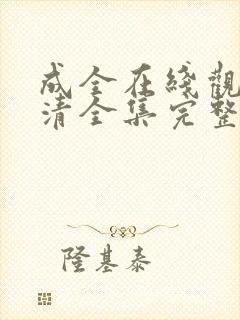 成全在綫觀
清全集完整
隆基泰